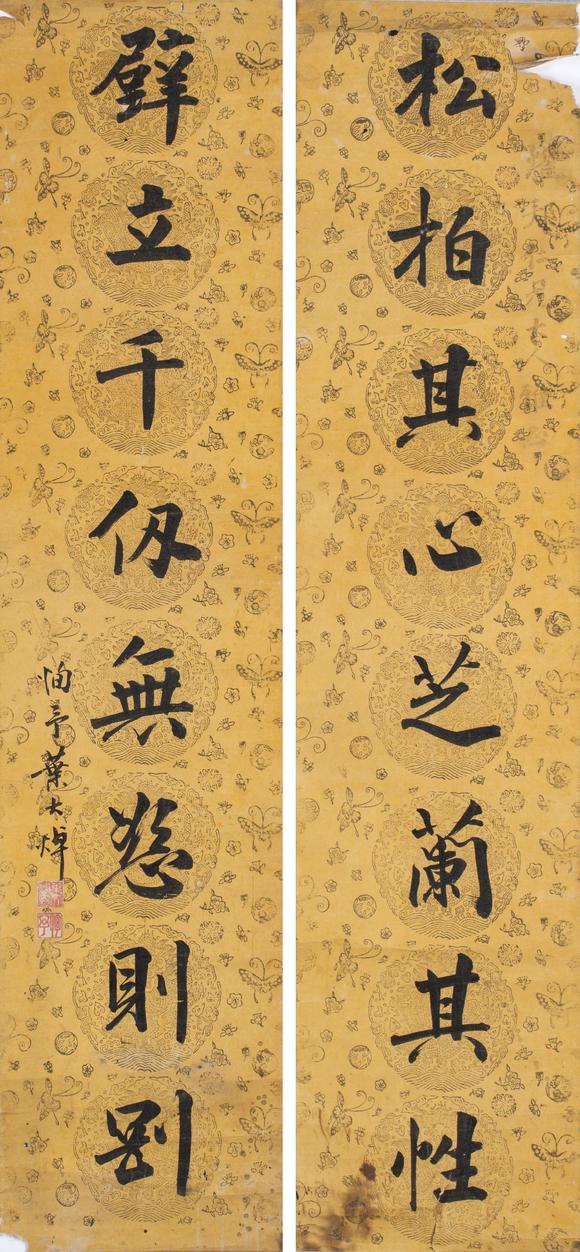 松柏其心芝蘭其性
壁立千仞無慾則剛
恂予葉大焯